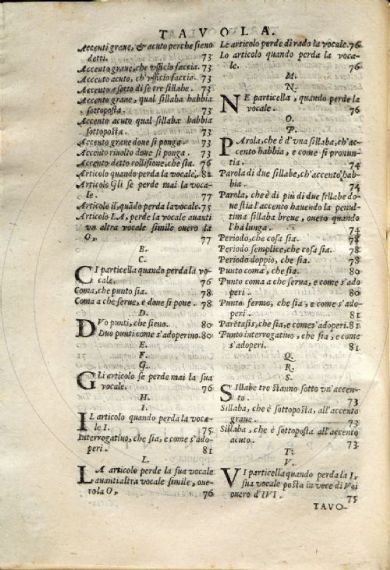 TAVOLA.
Accenti graue, & acuto perche sieno
detti. 73
Accento graue, che vfficio faccia. 73
Accento acuto, ch'vfficio faccia. 73
Accento è sotto di se tre sillabe. 73
Accento graue, qual sillaba habbia
sottoposta. 73
Accento acuto qual sillaba habbia
sottoposta. 73
Accento graue doue si ponga. 73
Accento riuolto doue si ponga. 73
Accento detto collisione, che sia. 76
Articolo quando perda la vocale. 81
Articolo Gli se perde mai la voca-
le. 77
Articolo il, quãdo perda la vocale. 75
Articolo LA, perde la vocale auanti
vn altra vocale simile ouero la
O. 77
B.
C.
CI particella quando perda la vo-
cale. 76
Coma, che punto sia. 78
Coma a che serue, e doue si pone. 78
D.
DVo punti, che sieno. 80
Duo punti come s'adoperino. 80
E.
F.
G.
Gli articolo se perde mai la sua
vocale. 76
H.
I.
IL articolo quando perda la voca-
le I. 75
Interrogatiuo, che sia, e come s'ado-
peri. 81
L.
LA articolo perde la sua vocale
auanti altra vocale simile, oue-
ro la O. 76
Le articolo perde di rado la vocale. 76
Lo articolo quando perda la voca-
le. 76
M.
N.
NE particella, quando perde la
vocale. 76
O.
P.
PArola, che è d'vna sillaba, ch'ac-
cento habbia, e come si pronun-
tia. 74
Parola di due sillabe, ch'accento hab-
bia. 74
Parola, che è di più di due sillabe do-
ue sia l'accento hauendo la penul-
tima sillaba breue, ouero quando
l'hà lunga. 74
Periodo, che cosa sia. 78
Periodo semplice, che cosa sia. 78
Periodo doppio, che sia. 78
Punto coma, che sia. 80
Punto coma a che serue, e come s'ado
peri. 80
Punto fermo, che sia, e come s'ado-
peri. 81
Parẽtesis, che sia, e come s'adoperi. 81
Punto interrogatiuo, che sia, e come
s'adoperi. 81
Q.
R.
S.
SIllabe tre stanno sotto vn'accen-
to. 73
Sillaba, che è sottoposta, all'accento
graue. 73
Sillaba, che è sottoposta all'accento
acuto. 73
T.
V.
VI particella quando perda la I,
sua vocale posta in vece di Voi
ouero d'IVI. 75
TAVO-